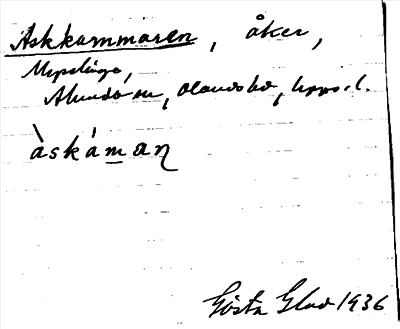 Askkammaren, åker,
Mepslinge,
Alunda sn, Olands hd, Upps. l.
àskáman
Gösta Glad 1936